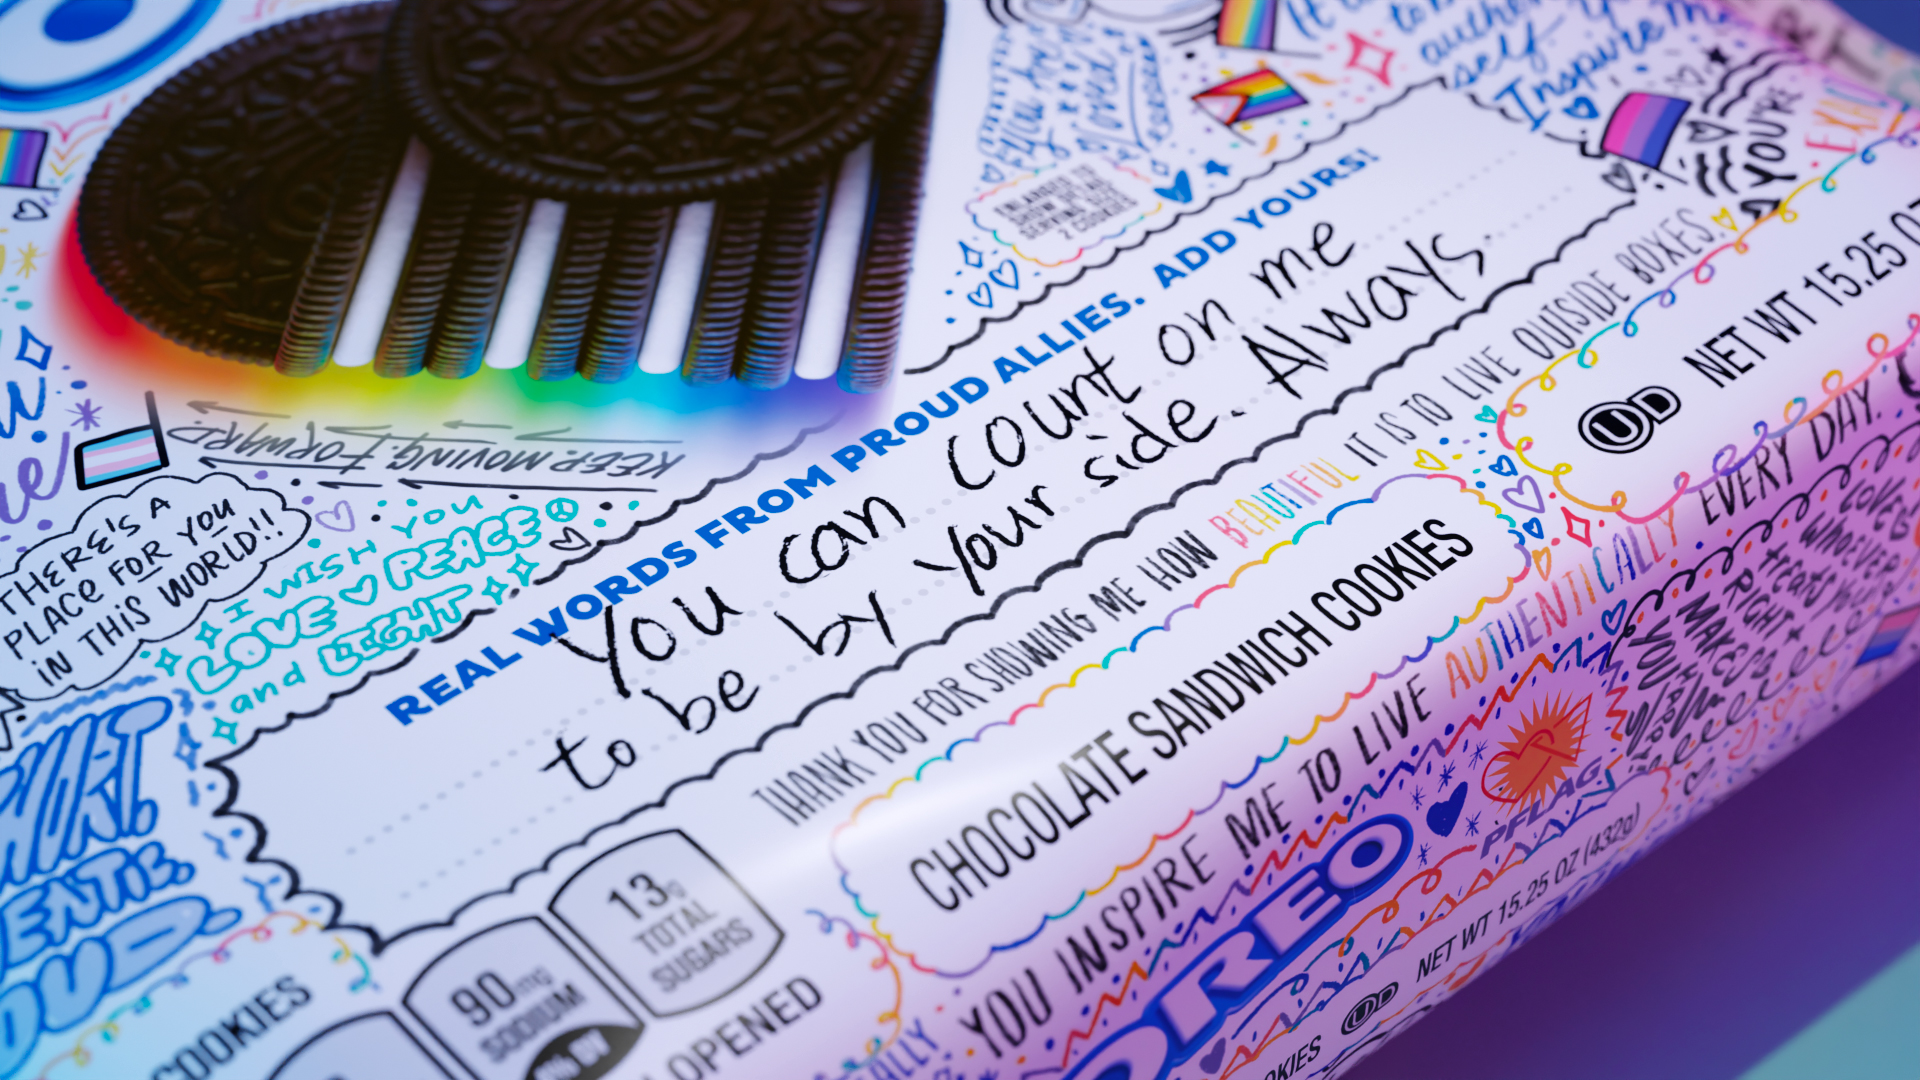 PROUD
It
to b
auth
self
Inspire me
YOU'RE
EXAC
loved
ENLARGED TO
SHOW DETAIL
SERVING SIZE
2 COOKIES
KEEP MOVING FORWARD
THERE'S A
PLACE FOR YOU
IN THIS WORLD!!
I WISH YOU
LOVE PEACE
and LIGHT
REAL WORDS FROM PROUD ALLIES. ADD YOURS!
You can count on me
to be by your side. Always.
THANK YOU FOR SHOWING ME HOW BEAUTIFUL IT IS TO LIVE OUTSIDE BOXES.
CHOCOLATE SANDWICH COOKIES
UD NET WT 15.25 OZ
YOU INSPIRE ME TO LIVE AUTHENTICALLY EVERY DAY.
OREO
PFLAG
UD NET WT 15.25 OZ (432g)
LOVE
whoever
treats you
RIGHT +
MAKES
YOU
HAPPY
13g
TOTAL
SUGARS
90mg
SODIUM
% DV
OPENED
COOKIES
ALLY
OKIES